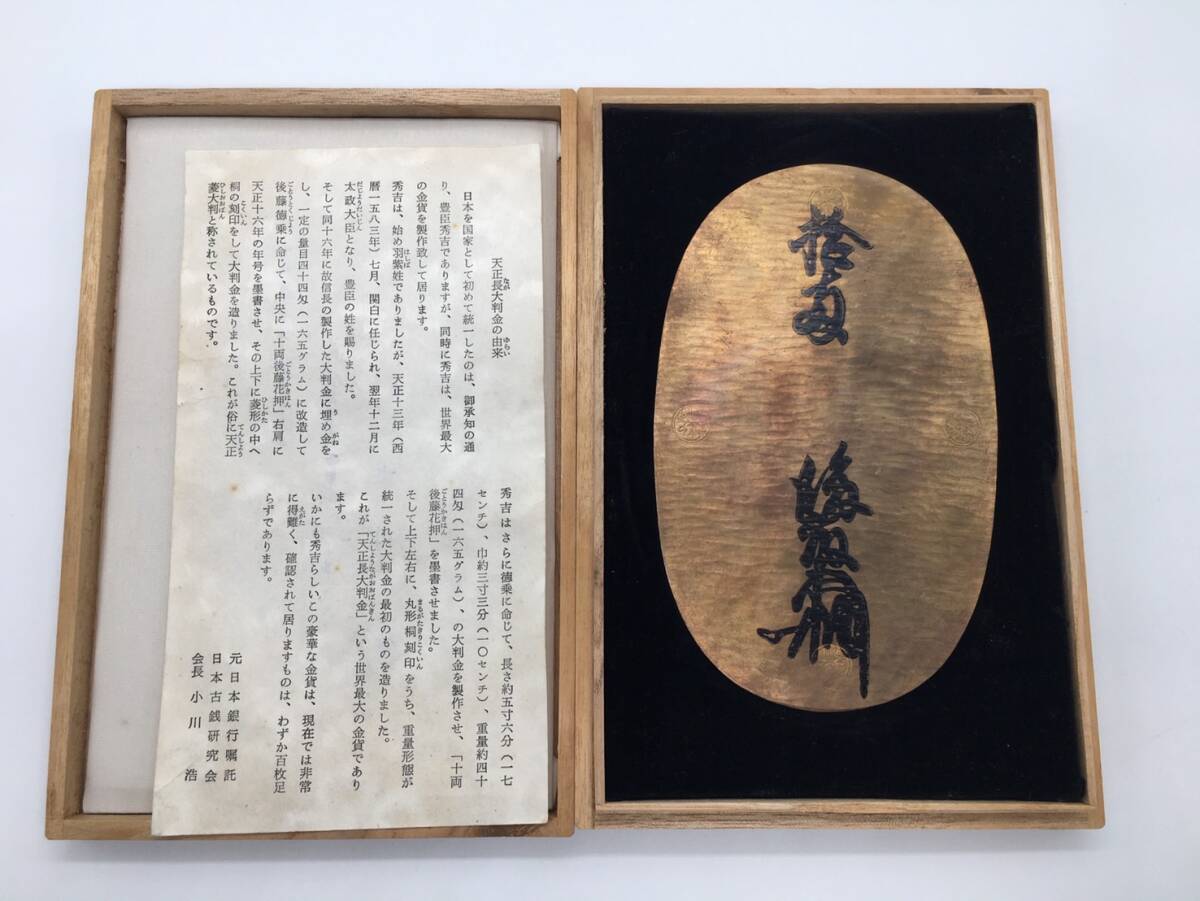 天正長大判金の由来
日本を国家として初めて統一したのは、御承知の通
り、豊臣秀吉でありますが、同時に秀吉は、世界最大
の金貨を製作致して居ります。
秀吉は、始め羽紫姓でありましたが、天正十三年（西
暦一五八三年）七月、関白に任じられ、翌年十二月に
太政大臣となり、豊臣の姓を賜りました。
そして同十六年に故信長の製作した大判金に埋め金を
し、一定の量目四十四匁（一六五グラム）に改造して
後藤徳乗に命じて、中央に「十両後藤花押」右肩に
天正十六年の年号を墨書させ、その上下に菱形の中へ
桐の刻印をして大判金を造りました。これが俗に天正
菱大判と称されているものです。
秀吉はさらに徳乗に命じて、長さ約五寸六分（一七
センチ）、巾約三寸三分（一〇センチ）、重量約四十
四匁（一六五グラム）、の大判金を製作させ、「十両
後藤花押」を墨書させました。
そして上下左右に、丸形桐刻印をうち、重量形態が
統一された大判金の最初のものを造りました。
これが「天正長大判金」という世界最大の金貨であり
ます。
いかにも秀吉らしいこの豪華な金貨は、現在では非常
に得難く、確認されて居りますものは、わずか百枚足
らずであります。
元日本銀行嘱託
日本古銭研究会
会長 小川 浩
拾両
後藤